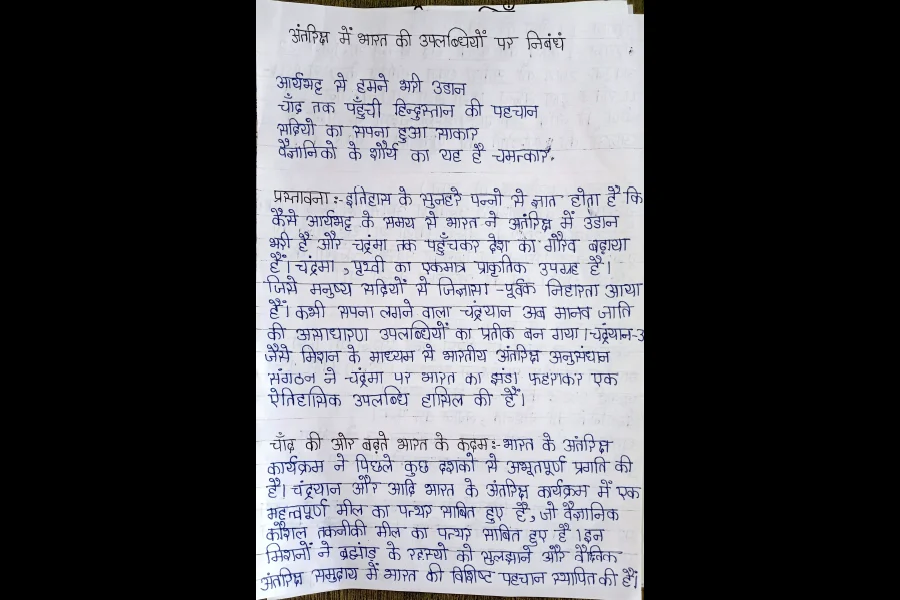 अंतरिक्ष में भारत की उपलब्धियों पर निबंध
आर्यभट्ट से हमने भरी उडान
चाँद तक पहुँची हिन्दुस्तान की पहचान
सदियो का सपना हुआ साकार
वैज्ञानिको के शौर्य का यह है चमत्कार.
प्रस्तावना :- इतिहास के सुनहरे पन्नो से ज्ञात होता है कि
कैसे आर्यभट्ट के समय से भारत ने अंतरिक्ष में उडान
भरी है और चद्रंमा तक पहुँचकर देश का गौरव बढ़ाया
हैं। चंद्रमा , पृथ्वी का एकमात्र प्राकृतिक उपग्रह है।
जिसे मनुष्य सदियों से जिज्ञासा - पूर्वक निहारता आया
हैं। कभी सपना लगने वाला चंद्रयान अब मानव जाति
की असाधारण उपलब्धियों का प्रतीक बन गया। चद्रंयान-3
जैसे मिशन के माध्यम से भारतीय अंतरिक्ष अनुसंधान
संगठन ने चंद्रमा पर भारत का झंडा फहराकर एक
ऐतिहासिक उपलब्धि हासिल की हैं।
चाँद की ओर बढ़ते भारत के कदम :- भारत के अंतरिक्ष
कार्यक्रम ने पिछले कुछ दशको से अभूतपूर्ण प्रगति की
है। चंद्रयान और आदि भारत के अंतरिक्ष कार्यक्रम में एक
महत्वपूर्ण मील का पत्थर साबित हुए है, जो वैज्ञानिक
कौशल तकनीकी मील का पत्थर साबित हुए है। इन
मिशनों ने ब्रह्मांड के रहस्यो को सुलझाने और वैश्विक
अंतरिक्ष समुदाय में भारत की विशिष्ट पहचान स्थापित की हैं।